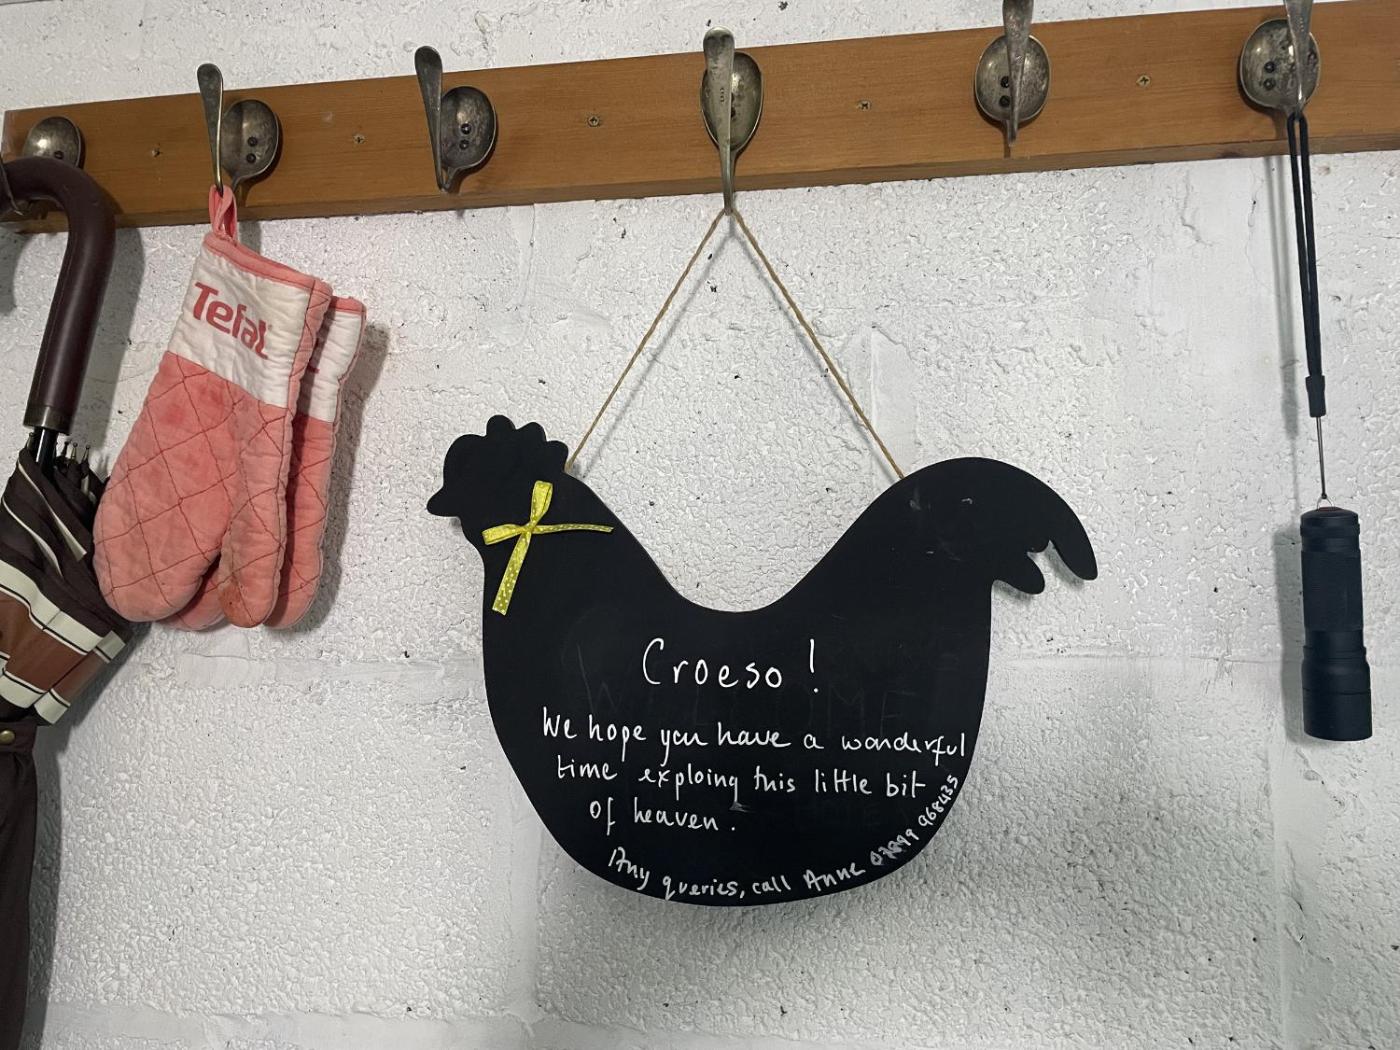 Tefal
Croeso!
We hope you have a wonderful
time exploing this little bit
of heaven.
Any queries, call Anne 07899 968435
WELCOME